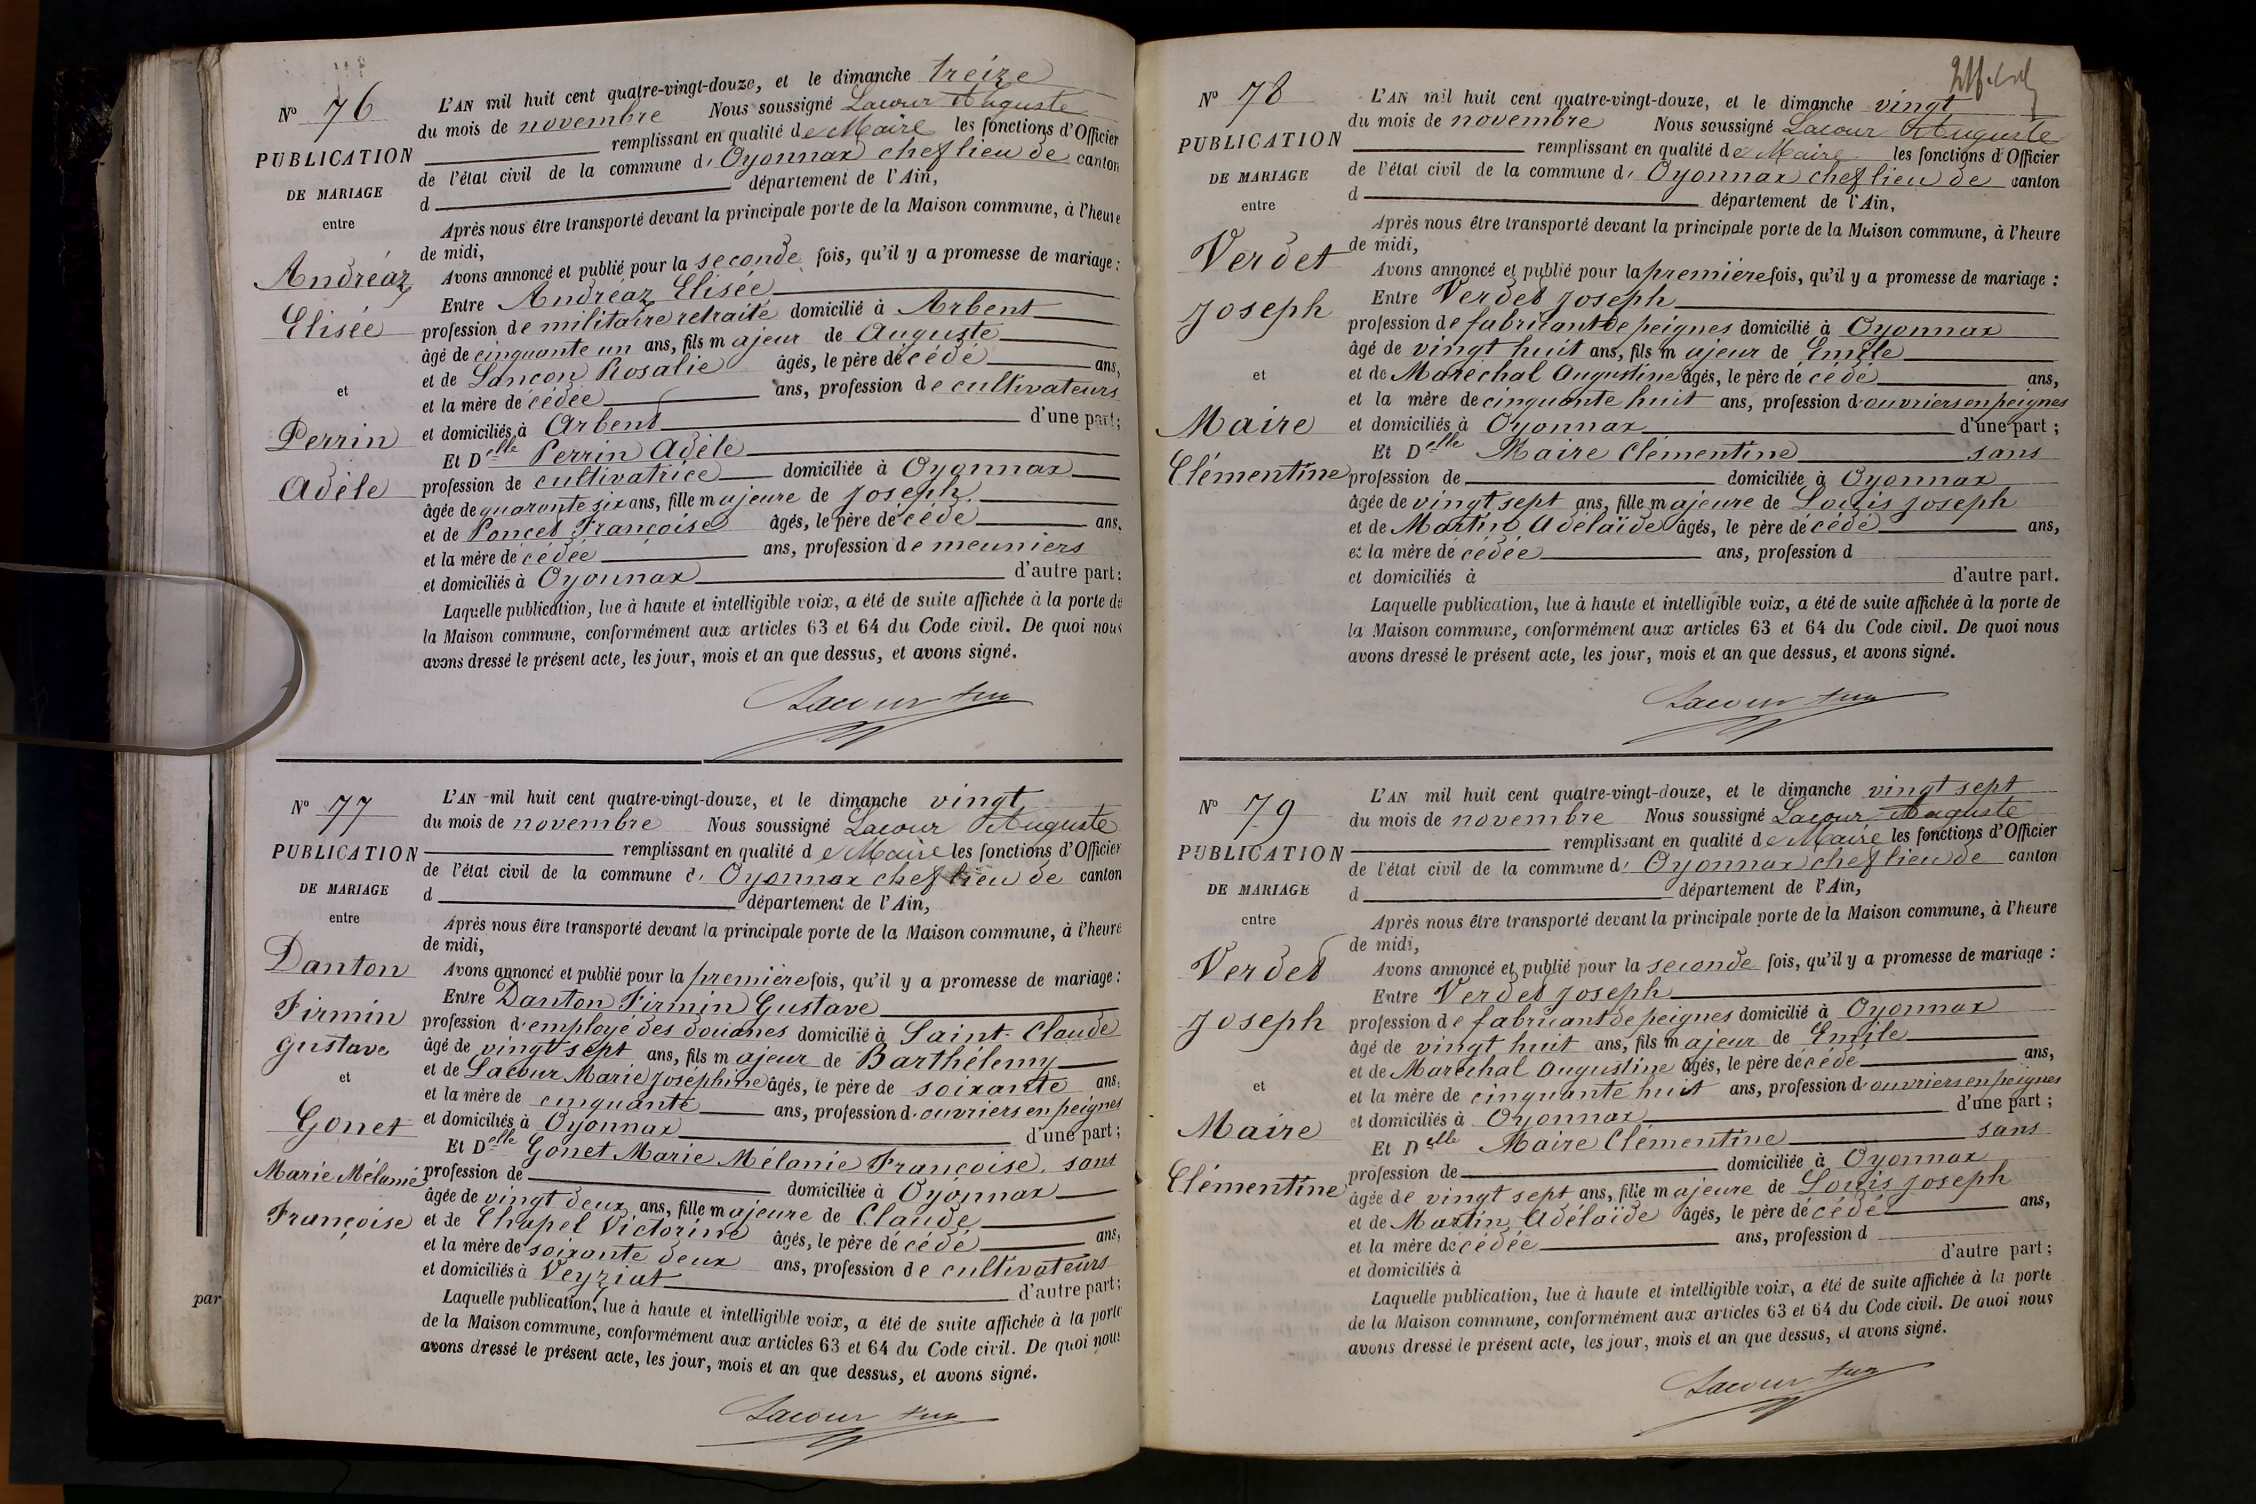 Nº 76
PUBLICATION
DE MARIAGE
entre
Andréaz
Elisée
et
Perrin
Adèle
L'AN mil huit cent quatre-vingt-douze, et le dimanche treize
du mois de novembre Nous soussigné Lacour Auguste
remplissant en qualité de Maire les fonctions d'Officier
de l'état civil de la commune d' Oyonnax chef lieu de canton
d département de l'Ain,
Après nous être transporté devant la principale porte de la Maison commune, à l'heure
de midi,
Avons annoncé et publié pour la seconde fois, qu'il y a promesse de mariage :
Entre Andréaz Elisée
profession de militaire retraité domicilié à Arbent
âgé de cinquante un ans, fils majeur de Auguste
et de Lançon Rosalie âgés, le père décédé ans,
et la mère décédée ans, profession de cultivateurs
et domiciliés à Arbent d'une part;
Et Delle Perrin Adèle
profession de cultivatrice domiciliée à Oyonnax
âgée de quarante six ans, fille majeure de Joseph
et de Poncet Françoise âgés, le père décédé ans.
et la mère décédée ans, profession de meuniers
et domiciliés à Oyonnax d'autre part:
Laquelle publication, lue à haute et intelligible voix, a été de suite affichée à la porte de
la Maison commune, conformément aux articles 63 et 64 du Code civil. De quoi nous
avons dressé le présent acte, les jour, mois et an que dessus, et avons signé.
Lacour
Nº 77
PUBLICATION
DE MARIAGE
entre
Danton
Firmin
Gustave
et
Gonet
Marie Mélanie
Françoise
L'AN mil huit cent quatre-vingt-douze, et le dimanche vingt
du mois de novembre Nous soussigné Lacour Auguste
remplissant en qualité de Maire les fonctions d'Officier
de l'état civil de la commune d' Oyonnax chef lieu de canton
d département de l'Ain,
Après nous être transporté devant la principale porte de la Maison commune, à l'heure
de midi,
Avons annoncé et publié pour la première fois, qu'il y a promesse de mariage :
Entre Danton Firmin Gustave
profession d'employé des douanes domicilié à Saint-Claude
âgé de vingt sept ans, fils majeur de Barthélemy
et de Lacour Marie Joséphine âgés, le père de soixante ans,
et la mère de cinquante ans, profession d'ouvriers en peignes
et domiciliés à Oyonnax d'une part;
Et Delle Gonet Marie Mélanie Françoise, sans
profession de domiciliée à Oyonnax
âgée de vingt deux ans, fille majeure de Claude
et de Chapel Victorine âgés, le père décédé ans,
et la mère de soixante deux ans, profession de cultivateurs
et domiciliés à Veyziat d'autre part;
Laquelle publication, lue à haute et intelligible voix, a été de suite affichée à la porte
de la Maison commune, conformément aux articles 63 et 64 du Code civil. De quoi nous
avons dressé le présent acte, les jour, mois et an que dessus, et avons signé.
Lacour
par
Nº 78
PUBLICATION
DE MARIAGE
entre
Verdet
Joseph
et
Maire
Clémentine
L'AN mil huit cent quatre-vingt-douze, et le dimanche vingt
du mois de novembre Nous soussigné Lacour Auguste
remplissant en qualité de Maire les fonctions d'Officier
de l'état civil de la commune d' Oyonnax chef lieu de canton
d département de l'Ain,
Après nous être transporté devant la principale porte de la Maison commune, à l'heure
de midi,
Avons annoncé et publié pour la première fois, qu'il y a promesse de mariage :
Entre Verdet Joseph
profession de fabricant de peignes domicilié à Oyonnax
âgé de vingt huit ans, fils majeur de Emile
et de Maréchal Augustine âgés, le père décédé ans,
et la mère de cinquante huit ans, profession d'ouvriers en peignes
et domiciliés à Oyonnax d'une part ;
Et Delle Maire Clémentine sans
profession de domiciliée à Oyonnax
âgée de vingt sept ans, fille majeure de Louis Joseph
et de Martin Adélaïde âgés, le père décédé ans,
et la mère décédée ans, profession d
et domiciliés à d'autre part.
Laquelle publication, lue à haute et intelligible voix, a été de suite affichée à la porte de
la Maison commune, conformément aux articles 63 et 64 du Code civil. De quoi nous
avons dressé le présent acte, les jour, mois et an que dessus, et avons signé.
Lacour
Nº 79
PUBLICATION
DE MARIAGE
entre
Verdet
Joseph
et
Maire
Clémentine
L'AN mil huit cent quatre-vingt-douze, et le dimanche vingt sept
du mois de novembre Nous soussigné Lacour Auguste
remplissant en qualité de Maire les fonctions d'Officier
de l'état civil de la commune d' Oyonnax chef lieu de canton
d département de l'Ain,
Après nous être transporté devant la principale porte de la Maison commune, à l'heure
de midi,
Avons annoncé et publié pour la seconde fois, qu'il y a promesse de mariage :
Entre Verdet Joseph
profession de fabricant de peignes domicilié à Oyonnax
âgé de vingt huit ans, fils majeur de Emile
et de Maréchal Augustine âgés, le père décédé ans,
et la mère de cinquante huit ans, profession d'ouvriers en peignes
et domiciliés à Oyonnax d'une part ;
Et Delle Maire Clémentine sans
profession de domiciliée à Oyonnax
âgée de vingt sept ans, fille majeure de Louis Joseph
et de Martin Adélaïde âgés, le père décédé ans,
et la mère décédée ans, profession d
et domiciliés à d'autre part ;
Laquelle publication, lue à haute et intelligible voix, a été de suite affichée à la porte
de la Maison commune, conformément aux articles 63 et 64 du Code civil. De quoi nous
avons dressé le présent acte, les jour, mois et an que dessus, et avons signé.
Lacour